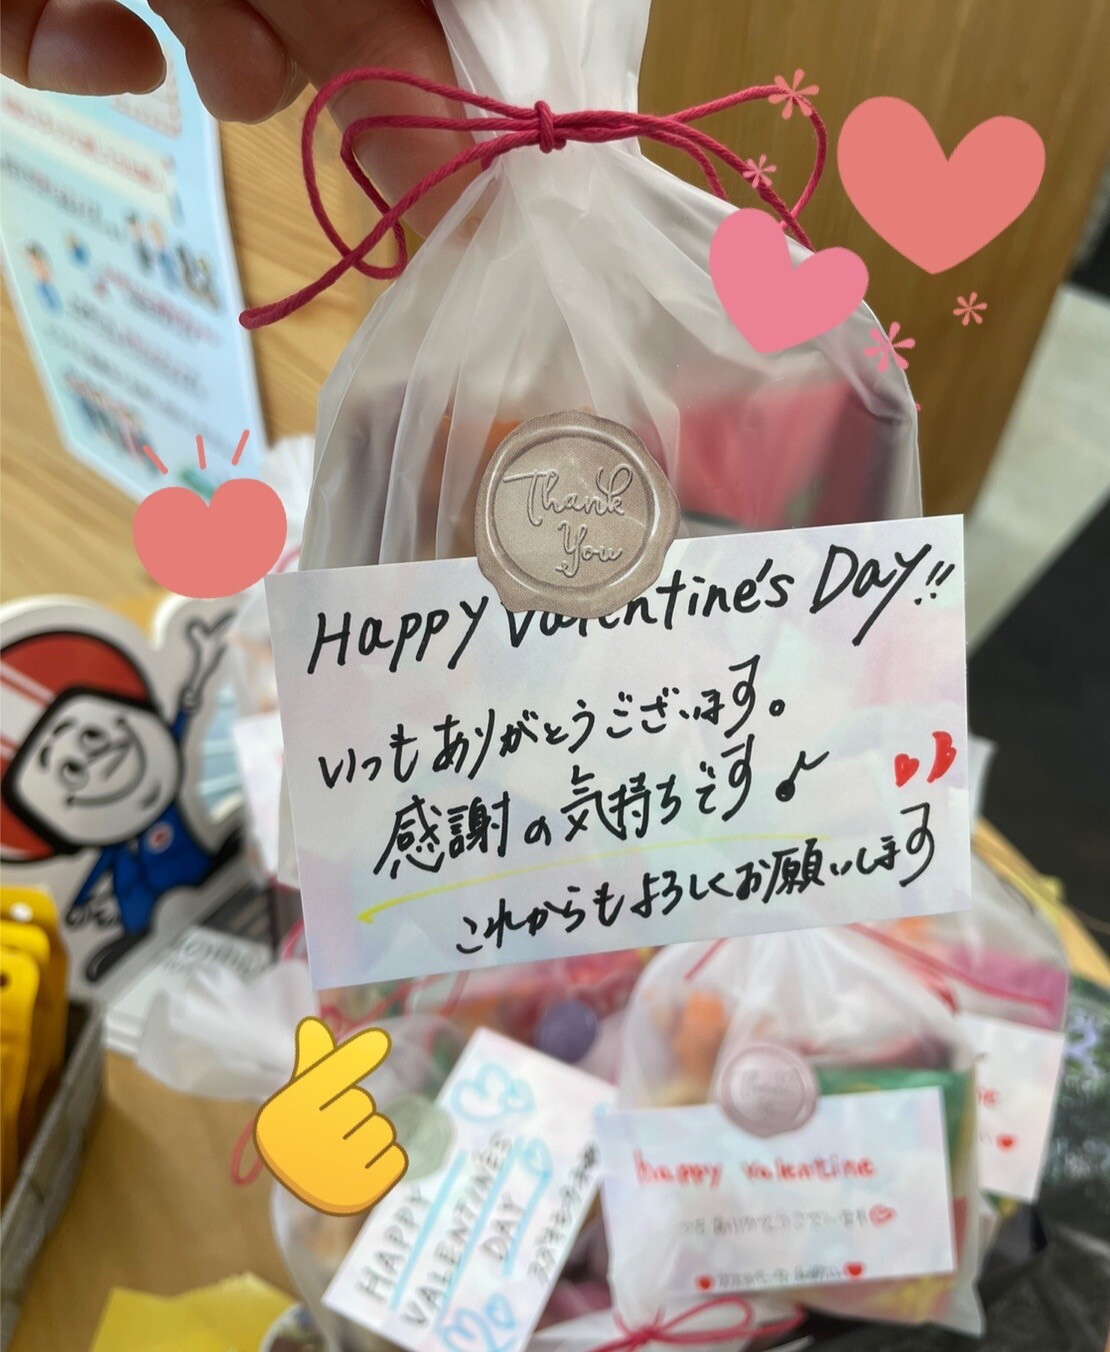 Thank
You
Happy Valentine's Day!!
いつもありがとうございます。
感謝の気持ちです♪
これからもよろしくお願いします
HAPPY
VALENTINE'S
DAY
happy valentine